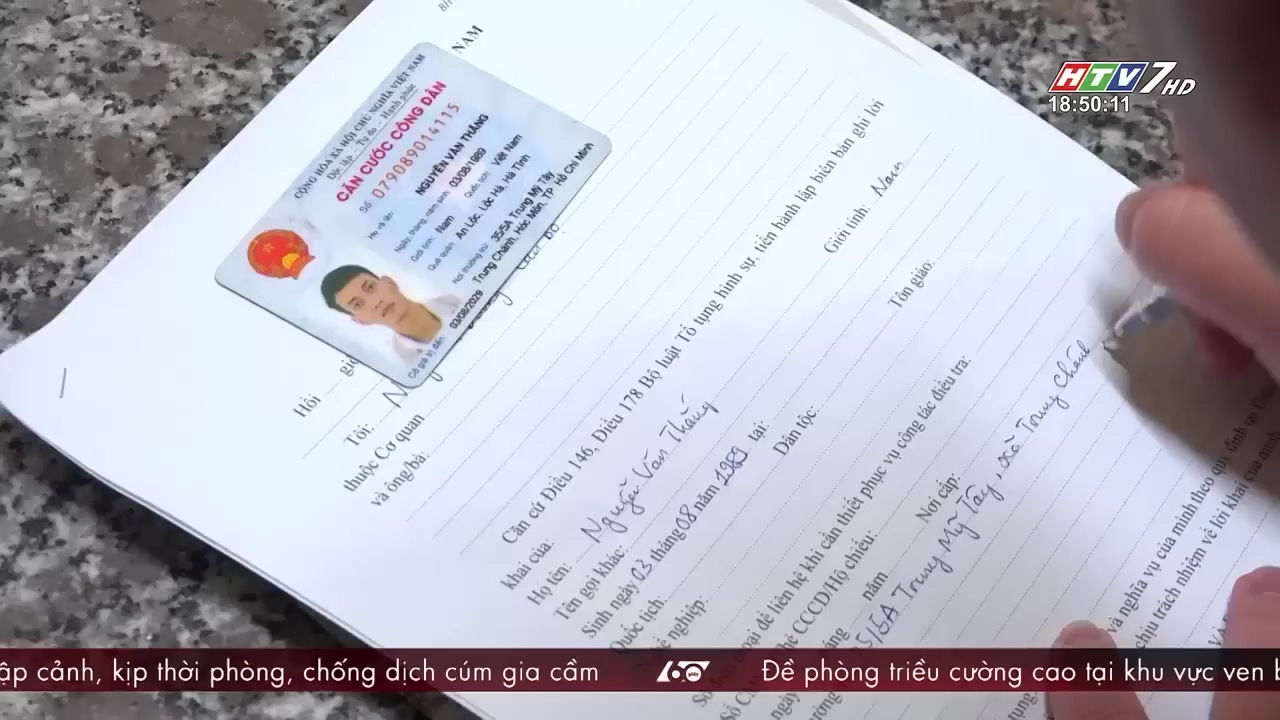 HTV7HD
18:50:11
NAM
CỘNG HÒA XÃ HỘI CHỦ NGHĨA VIỆT NAM
Độc lập - Tự do - Hạnh phúc
CĂN CƯỚC CÔNG DÂN
Số: 079089014115
Họ và tên:
NGUYỄN VĂN THẮNG
Ngày, tháng, năm sinh: 03/08/1989
Giới tính: Nam Quốc tịch: Việt Nam
Quê quán: An Lộc, Lộc Hà, Hà Tĩnh
Nơi thường trú: 35/5A Trung Mỹ Tây
Trung Chánh, Hóc Môn, TP. Hồ Chí Minh
Có giá trị đến 03/08/2029
Hồi giờ
Tôi:
thuộc Cơ quan
và ông/bà:
Căn cứ Điều 146, Điều 178 Bộ luật Tố tụng hình sự, tiến hành lập biên bản ghi lời
khai của:
Họ tên: Nguyễn Văn Thắng Giới tính: Nam
Tên gọi khác:
Sinh ngày 03 tháng 08 năm 1989 tại:
Quốc tịch: Dân tộc: Tôn giáo:
nghiệp:
để liên hệ khi cần thiết phục vụ công tác điều tra:
CCCD/Hộ chiếu:
năm Nơi cấp:
5/5A Trung Mỹ Tây, xã Trung Chánh
và nghĩa vụ của mình theo quy định tại
chịu trách nhiệm về lời khai của mình
cảnh, kịp thời phòng, chống dịch cúm gia cầm 60 Đề phòng triều cường cao tại khu vực ven